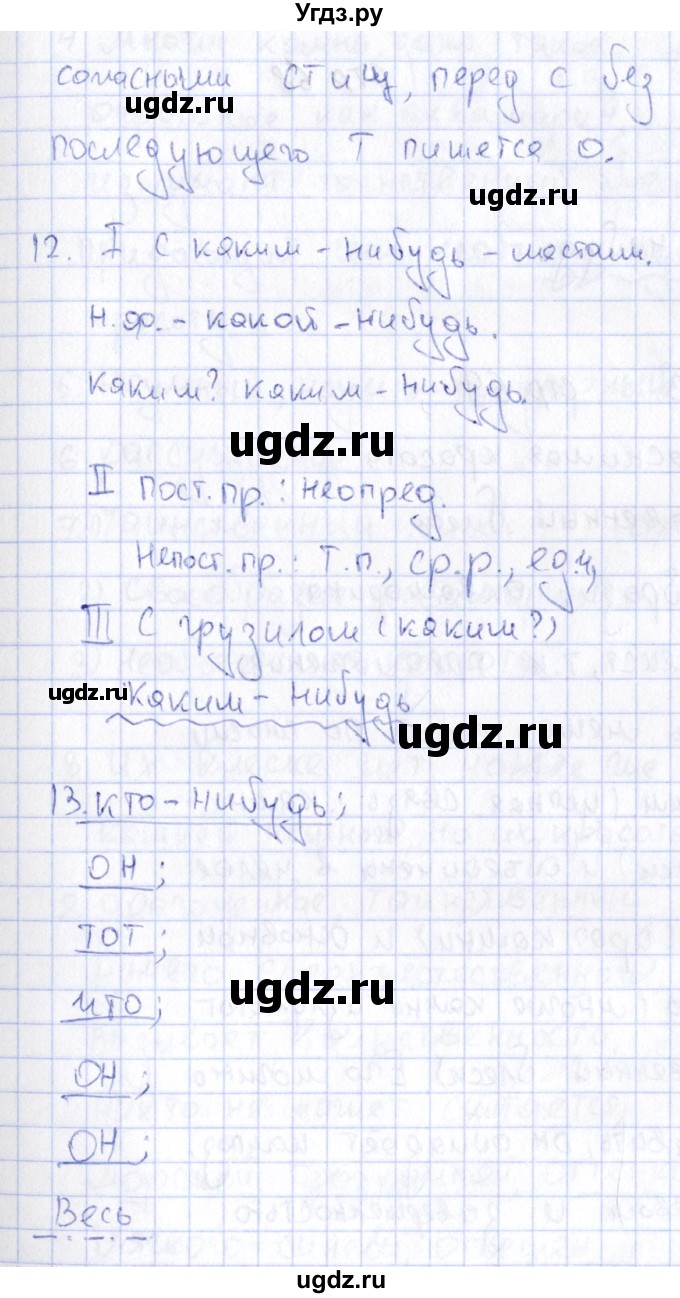 Угдз.ру
согласными ст и щ, перед с без
ugdz.ru
последующего т пишется о.
ugdz.ru
12. I С каким-нибудь - местоим.
н.ф. - какой-нибудь.
каким? каким-нибудь.
ugdz.ru
II Пост. пр.: неопред.
Непост. пр.: Т.п., ср.р., ед.ч,
III С грузилом (каким?)
ugdz.ru
каким-нибудь
ugdz.ru
13. кто-нибудь;
ОН;
ТОТ;
что;
ugdz.ru
ОН;
ОН;
Весь
ugdz.ru